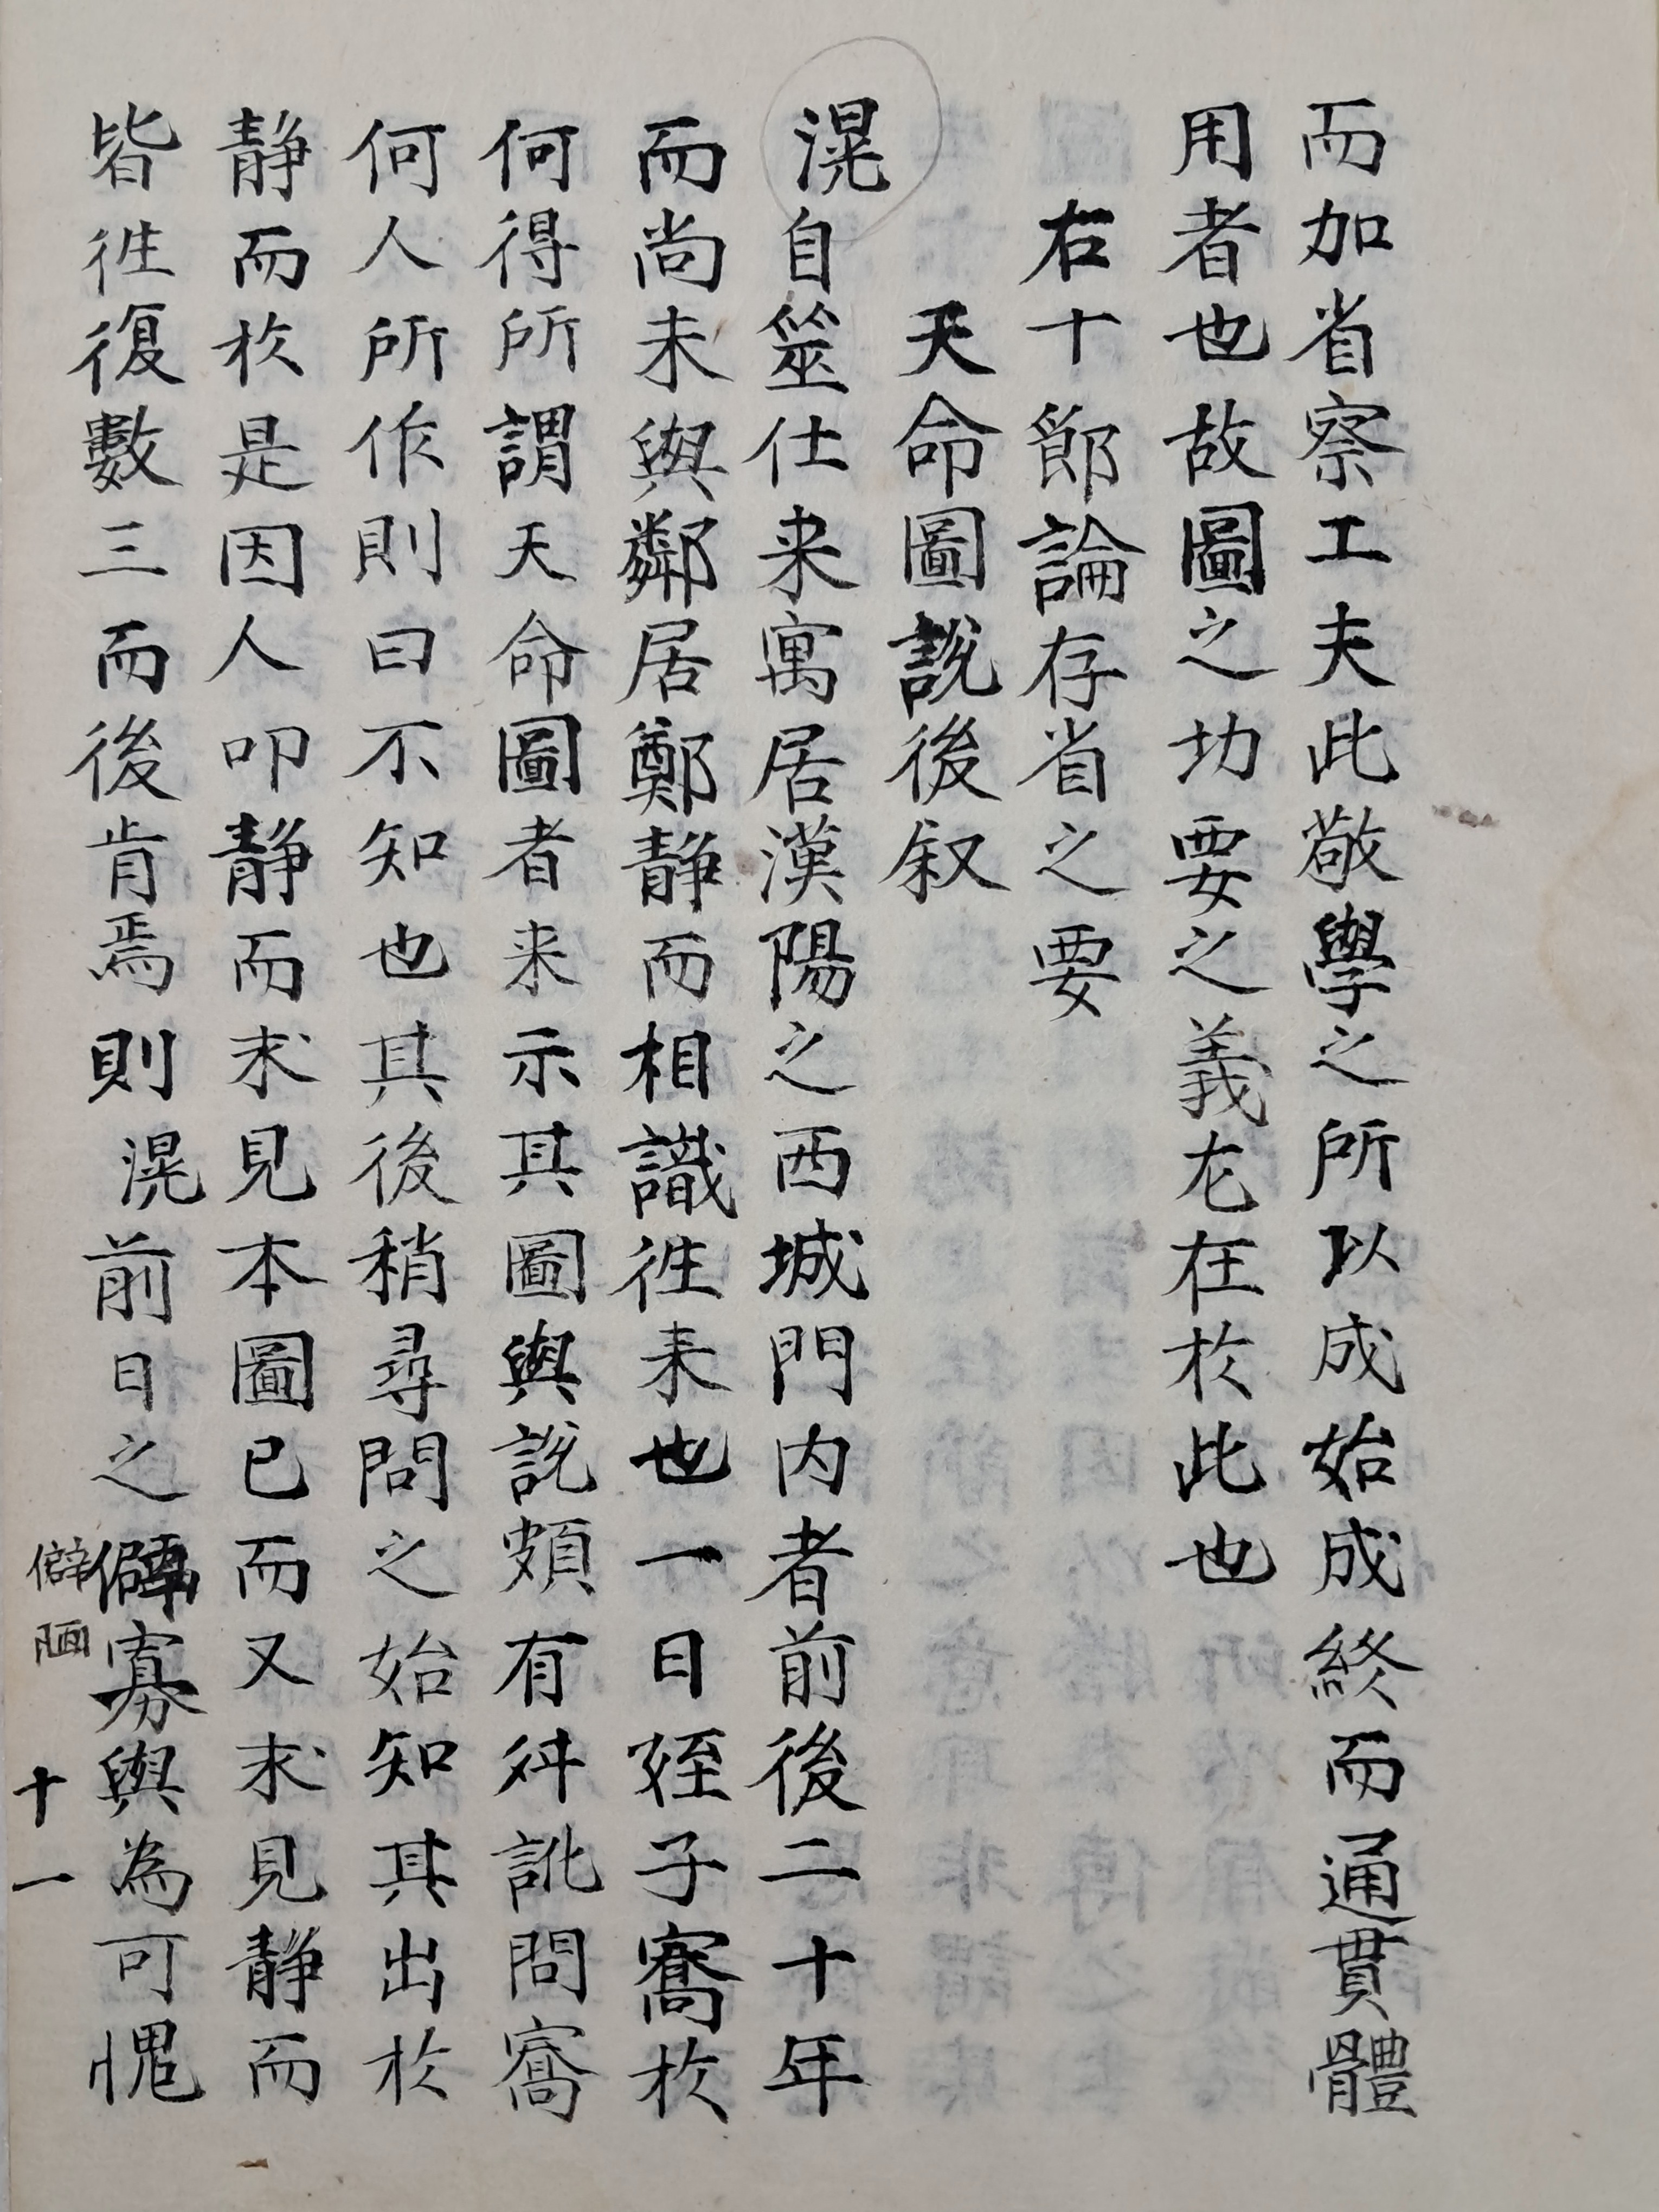 而加省察工夫此敬學之所以成始成終而通貫體
用者也故圖之功要之義尤在於此也
右十節論存省之要
天命圖說後叙
滉自筮仕来寓居漢陽之西城門内者前後二十年
而尚未與鄰居鄭静而相識徃来也一日姪子㝯於
何得所謂天命圖者来示其圖與說頗有舛訛問㝯
何人所作則曰不知也其後稍尋問之始知其出於
静而於是因人叩静而求見本圖已而又求見静而
皆徃復數三而後肯焉則滉前日之僻寡與為可愧
僻陋
十一